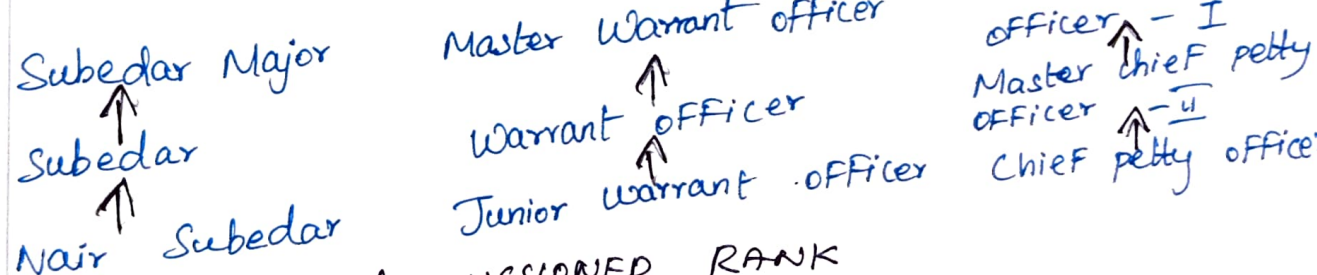 Subedar Major
Subedar
Nair Subedar
Master Warrant officer
Warrant officer
Junior warrant officer
officer - I
Master Chief petty
officer - II
Chief petty office
RANK